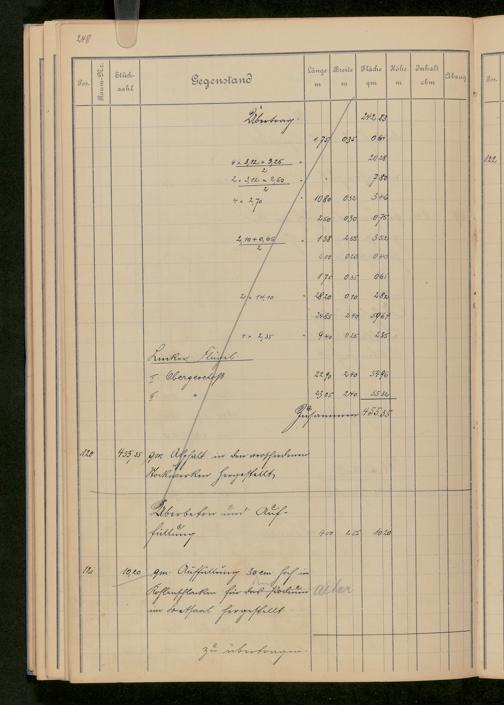 248
Pos. Raum-Nr. Stückzahl Gegenstand Länge m Breite m Fläche qm Höhe m Inhalt cbm Abzug
Übertrag: 242,83
1,75 0,35 0,61
4 × 3,12 + 3,26 / 2 20,28
2 × 3,12 + 2,60 / 2 7,80
4 × 2,70 10,80 0,32 3,46
2,50 0,30 0,75
2,10 + 0,65 / 2 1,38 2,55 3,52
0,20 0,40
1,75 0,35 0,61
2 × 14,10 28,20 0,10 2,82
24,65 2,40 59,16
4 × 2,35 9,40 2,85
Linker Flügel
I. Obergeschoß 22,90 2,40 54,96
" 23,05 2,40 55,32
Zusammen 455,35
120 455,35 qm Asphalt in den verschiedenen
Stockwerken hergestellt,
Überbeton und Auf-
füllung 4,00 2,55 10,20
121 10,20 qm Auffüllung 30 cm hoch in
Kohlenschlacken für das Podium
im hergestellt
zu übertragen
Pos.
122